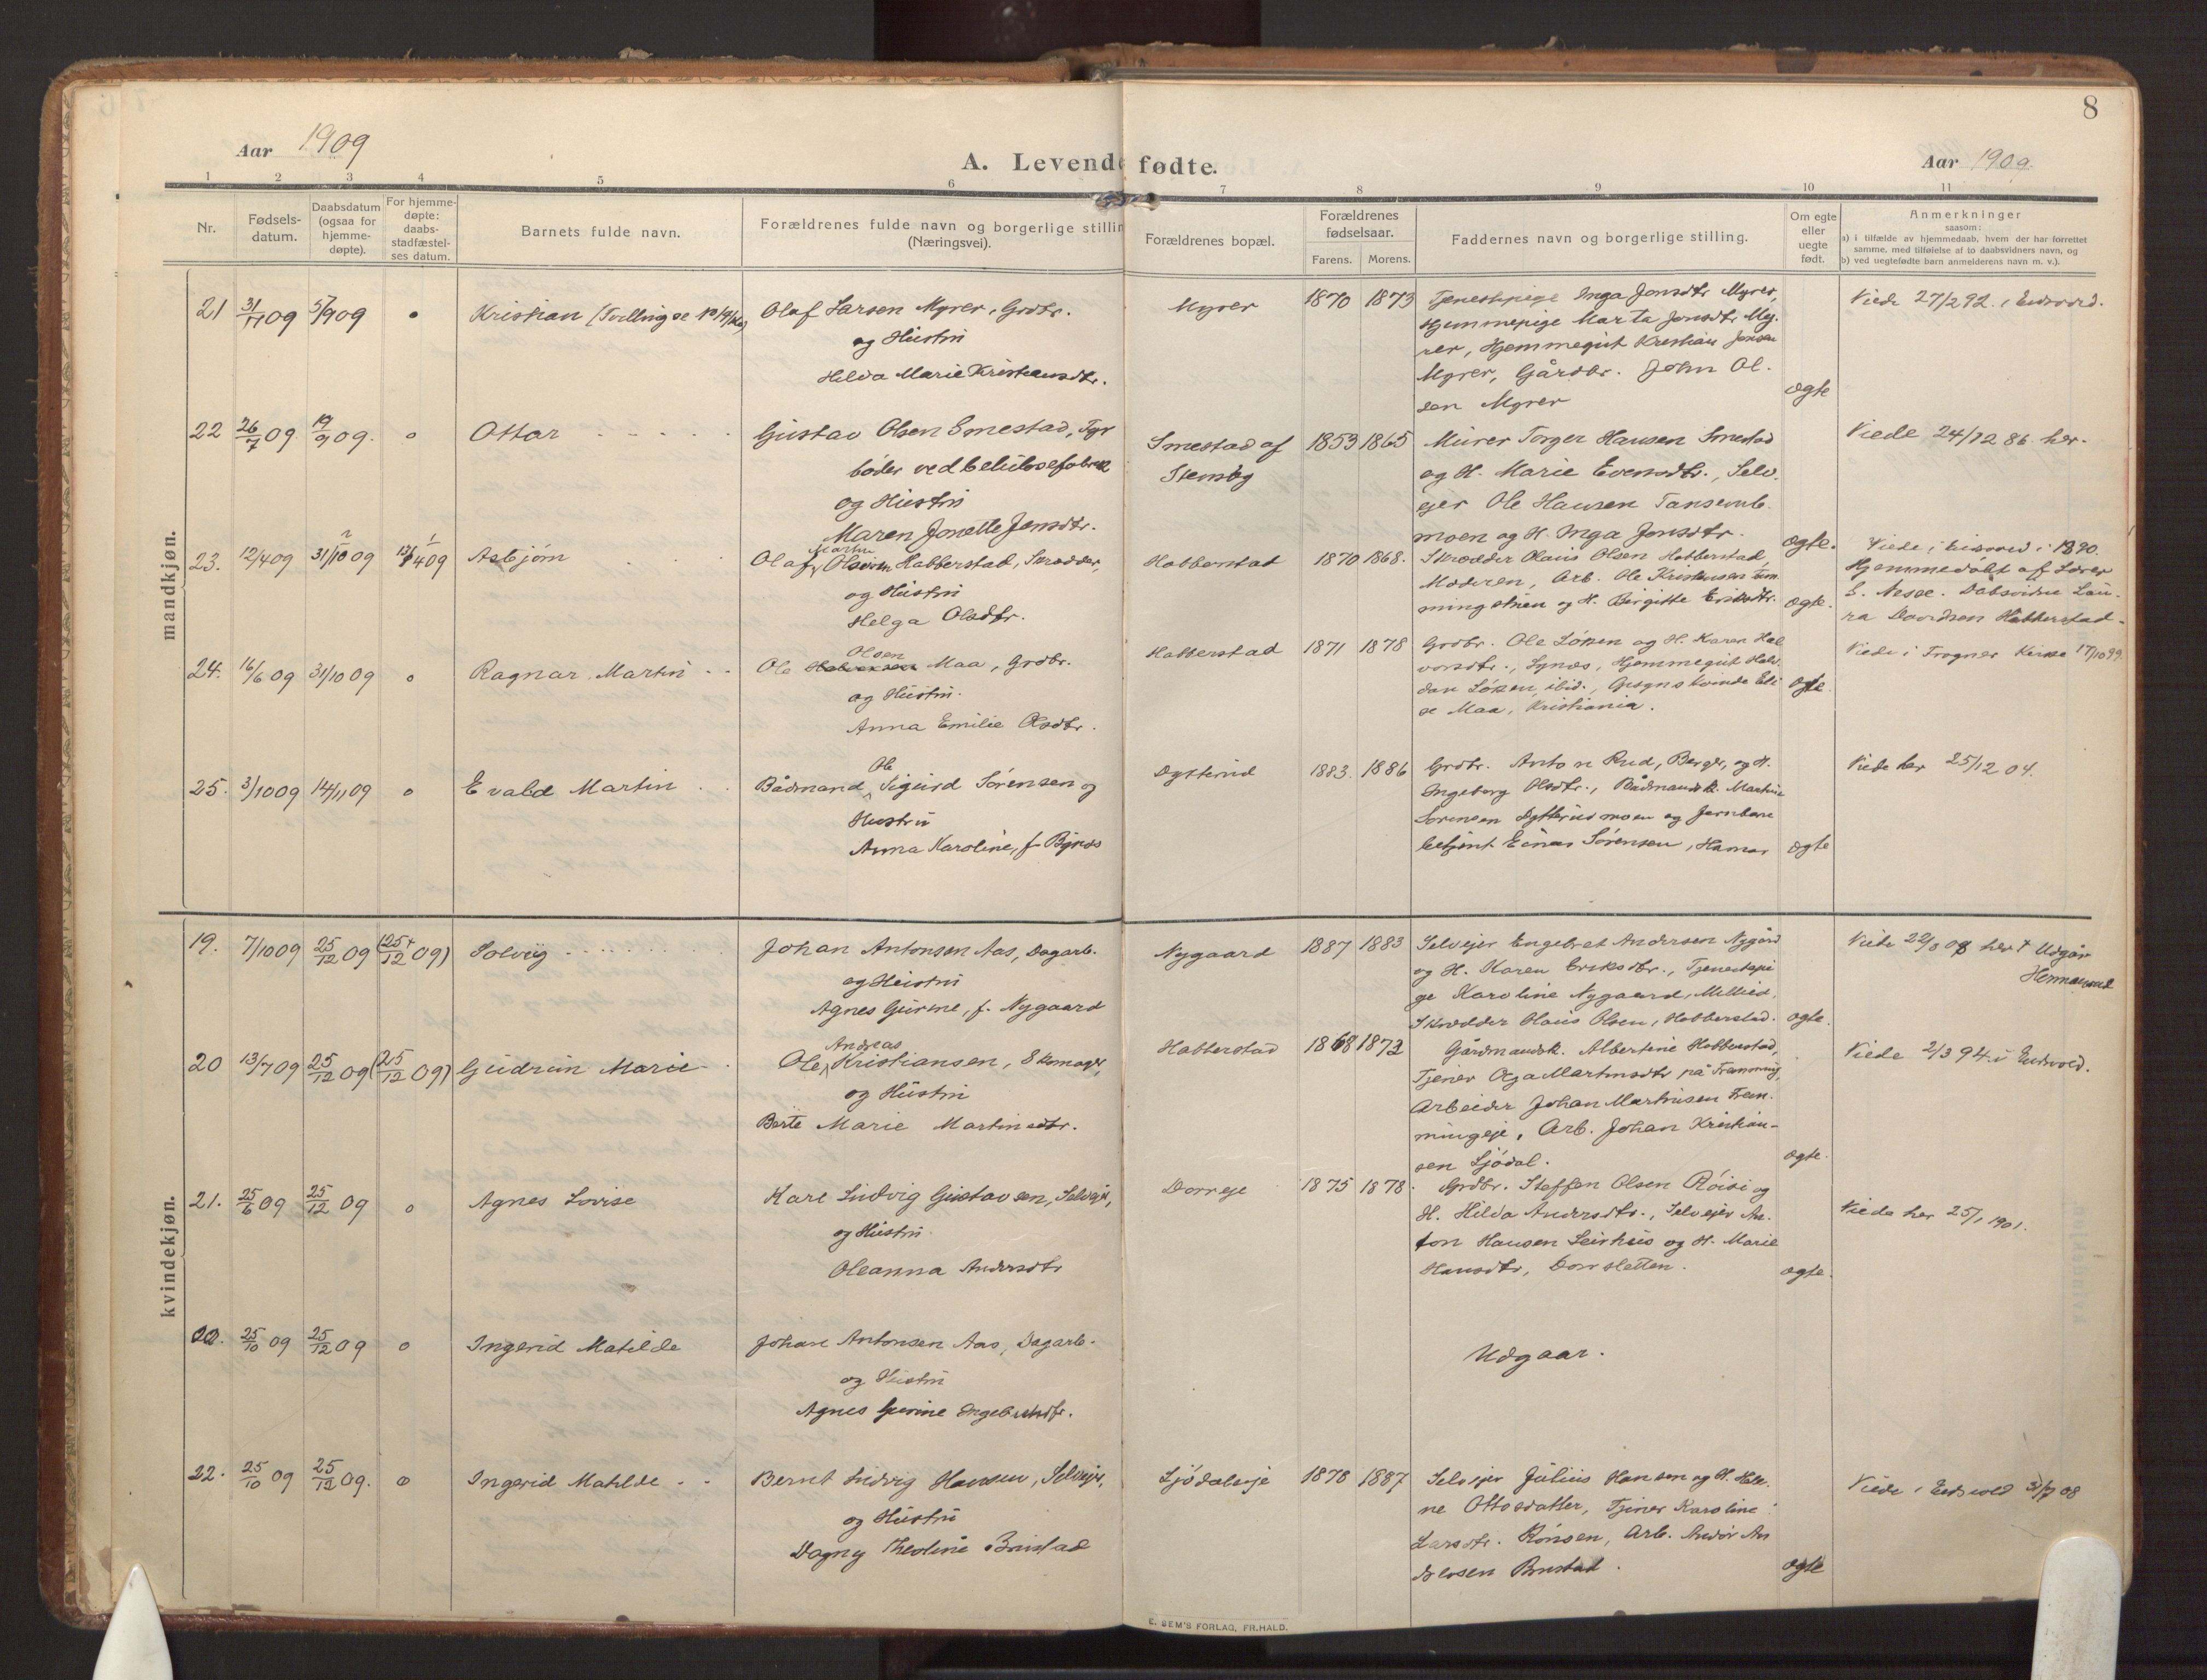 8
Aar 1909
A. Levende fødte.
Aar 1909.
1 2 3 4 5 6 7 8 9 10 11
Nr.
Fødsels-
datum.
Daabsdatum
(ogsaa for
hjemme-
døpte).
For hjemme-
døpte:
daabs-
stadfæstel-
ses datum.
Barnets fulde navn.
Forældrenes fulde navn og borgerlige stillin
(Næringsvei).
Forældrenes bopæl.
Forældrenes
fødselsaar.
Farens. Morens.
Faddernes navn og borgerlige stilling.
Om egte
eller
uegte
født.
Anmerkninger
saasom:
a) i tilfælde av hjemmedaab, hvem der har forrettet
samme, med tilføielse af to daabsvidners navn, og
b) ved uegtefødte barn anmelderens navn m. v.).
mandkjøn.
21 09 5/9 09 Kristian
Olaf Larsen Myrer, Grdbr.
og Hustru
Hilda Marie Kristiansdtr.
Myrer
1870 1873
Tjenestepige Inga Jonsdtr Myrer,
Hjemmepige Marta Jonsdtr My-
rer, Hjemmegut Kristian Jonsen
Myrer, Gårdbr. John Ol-
sen Myrer
ægte
Viede 27/2 92. i Eidsvold.
22 26/7 09 19/9 09. o Ottar
Gustav Olsen Smestad, Fyr
bøder ved Cellulosefabrik
og Hustru
Maren Jonette Jensdtr.
Smestad af
Stensby
1853 1865
Murer Torger Hansen Smestad
og H. Marie Evensdtr., Selv-
ejer Ole Hansen
moen og H. Inga Jonsdtr.
ægte.
Viede 24/12 86. her.
23. 12/4 09 31/10 09 09 Asbjørn
Martin
Olaf Olsen Habberstad, Skrædder,
og Hustru
Helga Olsdtr.
Habberstad
1870 1868.
Skrædder Olaus Olsen Habberstad,
Moderen, Arb. Ole Kristiansen
og H. Birgitte Eriksdtr.
ægte.
Viede i Eidsvold i 1890.
Hjemmedøbt af Lærer
S. Nesse. Døbsvidne Lau-
ra Davidsen Habberstad.
24. 16/6 09 31/10 09 o Ragnar Martin
Olsen
Ole Halvorsen Maa, Grdbr.
og Hustru.
Anna Emilie Olsdtr.
Habberstad
1871 1878
Grdbr. Ole Løken og H. Karen Hal
vorsdtr., Hjemmegut Hal
dan Løken, ibid., Eli
se Maa, Kristiania.
ægte
Viede i Trogner Kirke 17/10 99.
25. 3/10 09 14/11 09 o Evald Martin
Ole
Bådmand Sigurd Sørensen og
Hustru
Anna Karoline, f. Bynæs
Dytterud
1883. 1886
Grdbr. Anton Rud, Berger, og H.
Ingeborg Olsdtr., Bådmandsk. Martine
Sørensen Dytterudmoen og Jernbane
betjent Einar Sørensen, Hamar
ægte
Viede her 25/12 04.
kvindekjøn.
19. 7/10 09 25/12 09 (25/12 09) Solveig
Johan Antonsen Aas, Dagarb.
og Hustru
Agnes Gurine, f. Nygaard
Nygaard
1887 1883
Selvejer Engebret Andersen Nygård
og H. Karen Eriksdtr., Tjenestepi
ge Karoline Nygaard,
Skrædder Olaus Olsen, Habberstad.
ægte.
Viede 22/8 08 her Udgår
20 13/7 09 25/12 09 (25/12 09) Gudrun Marie
Andreas
Ole Kristiansen, Skomager,
og Hustru
Berte Marie Martinsdtr.
Habberstad
1868 1873
Gårdmandsk. Albertine Habberstad,
Tjener Olga Martinsdtr på Framning,
Arbeider Johan Martinsen Fram-
mingeje, Arb. Johan Kristian-
sen Ljødal.
ægte.
Viede 2/3 94 i Eidsvold.
21. 25/6 09 25/12 09 o Agnes Lovise
Karl Ludvig Gustavsen, Selvejer,
og Hustru.
Oleanna Andersdtr
Dorreje
1875 1878.
Grdbr. Steffen Olsen Røisi og
H. Hilda Andersdtr., Selvejer An-
ton Hansen Leirhus og H. Marie
Hansdtr, Dorrsletten.
ægte.
Viede her 25/1 1901.
22. 25/10 09 25/12 09 o Ingerid Matilde
Johan Antonsen Aas, Dagarb.
og Hustru
Agnes Gurine Engebretsdtr.
Udgaar.
22. 25/10 09 25/12 09. o Ingerid Matilde
Bernt Ludvig Hansen, Selvejer,
og Hustru
Dagny Theoline Brustad
Ljødaleje
1878 1887
Selvejer Julius Hansen og H. Hele-
ne Ottosdatter, Tjener Karoline
Larsdtr. Rønsen, Arb. Andor An
dersen Brustad.
ægte
Viede i Eidsvold 08
E. SEM'S FORLAG, FR.HALD.